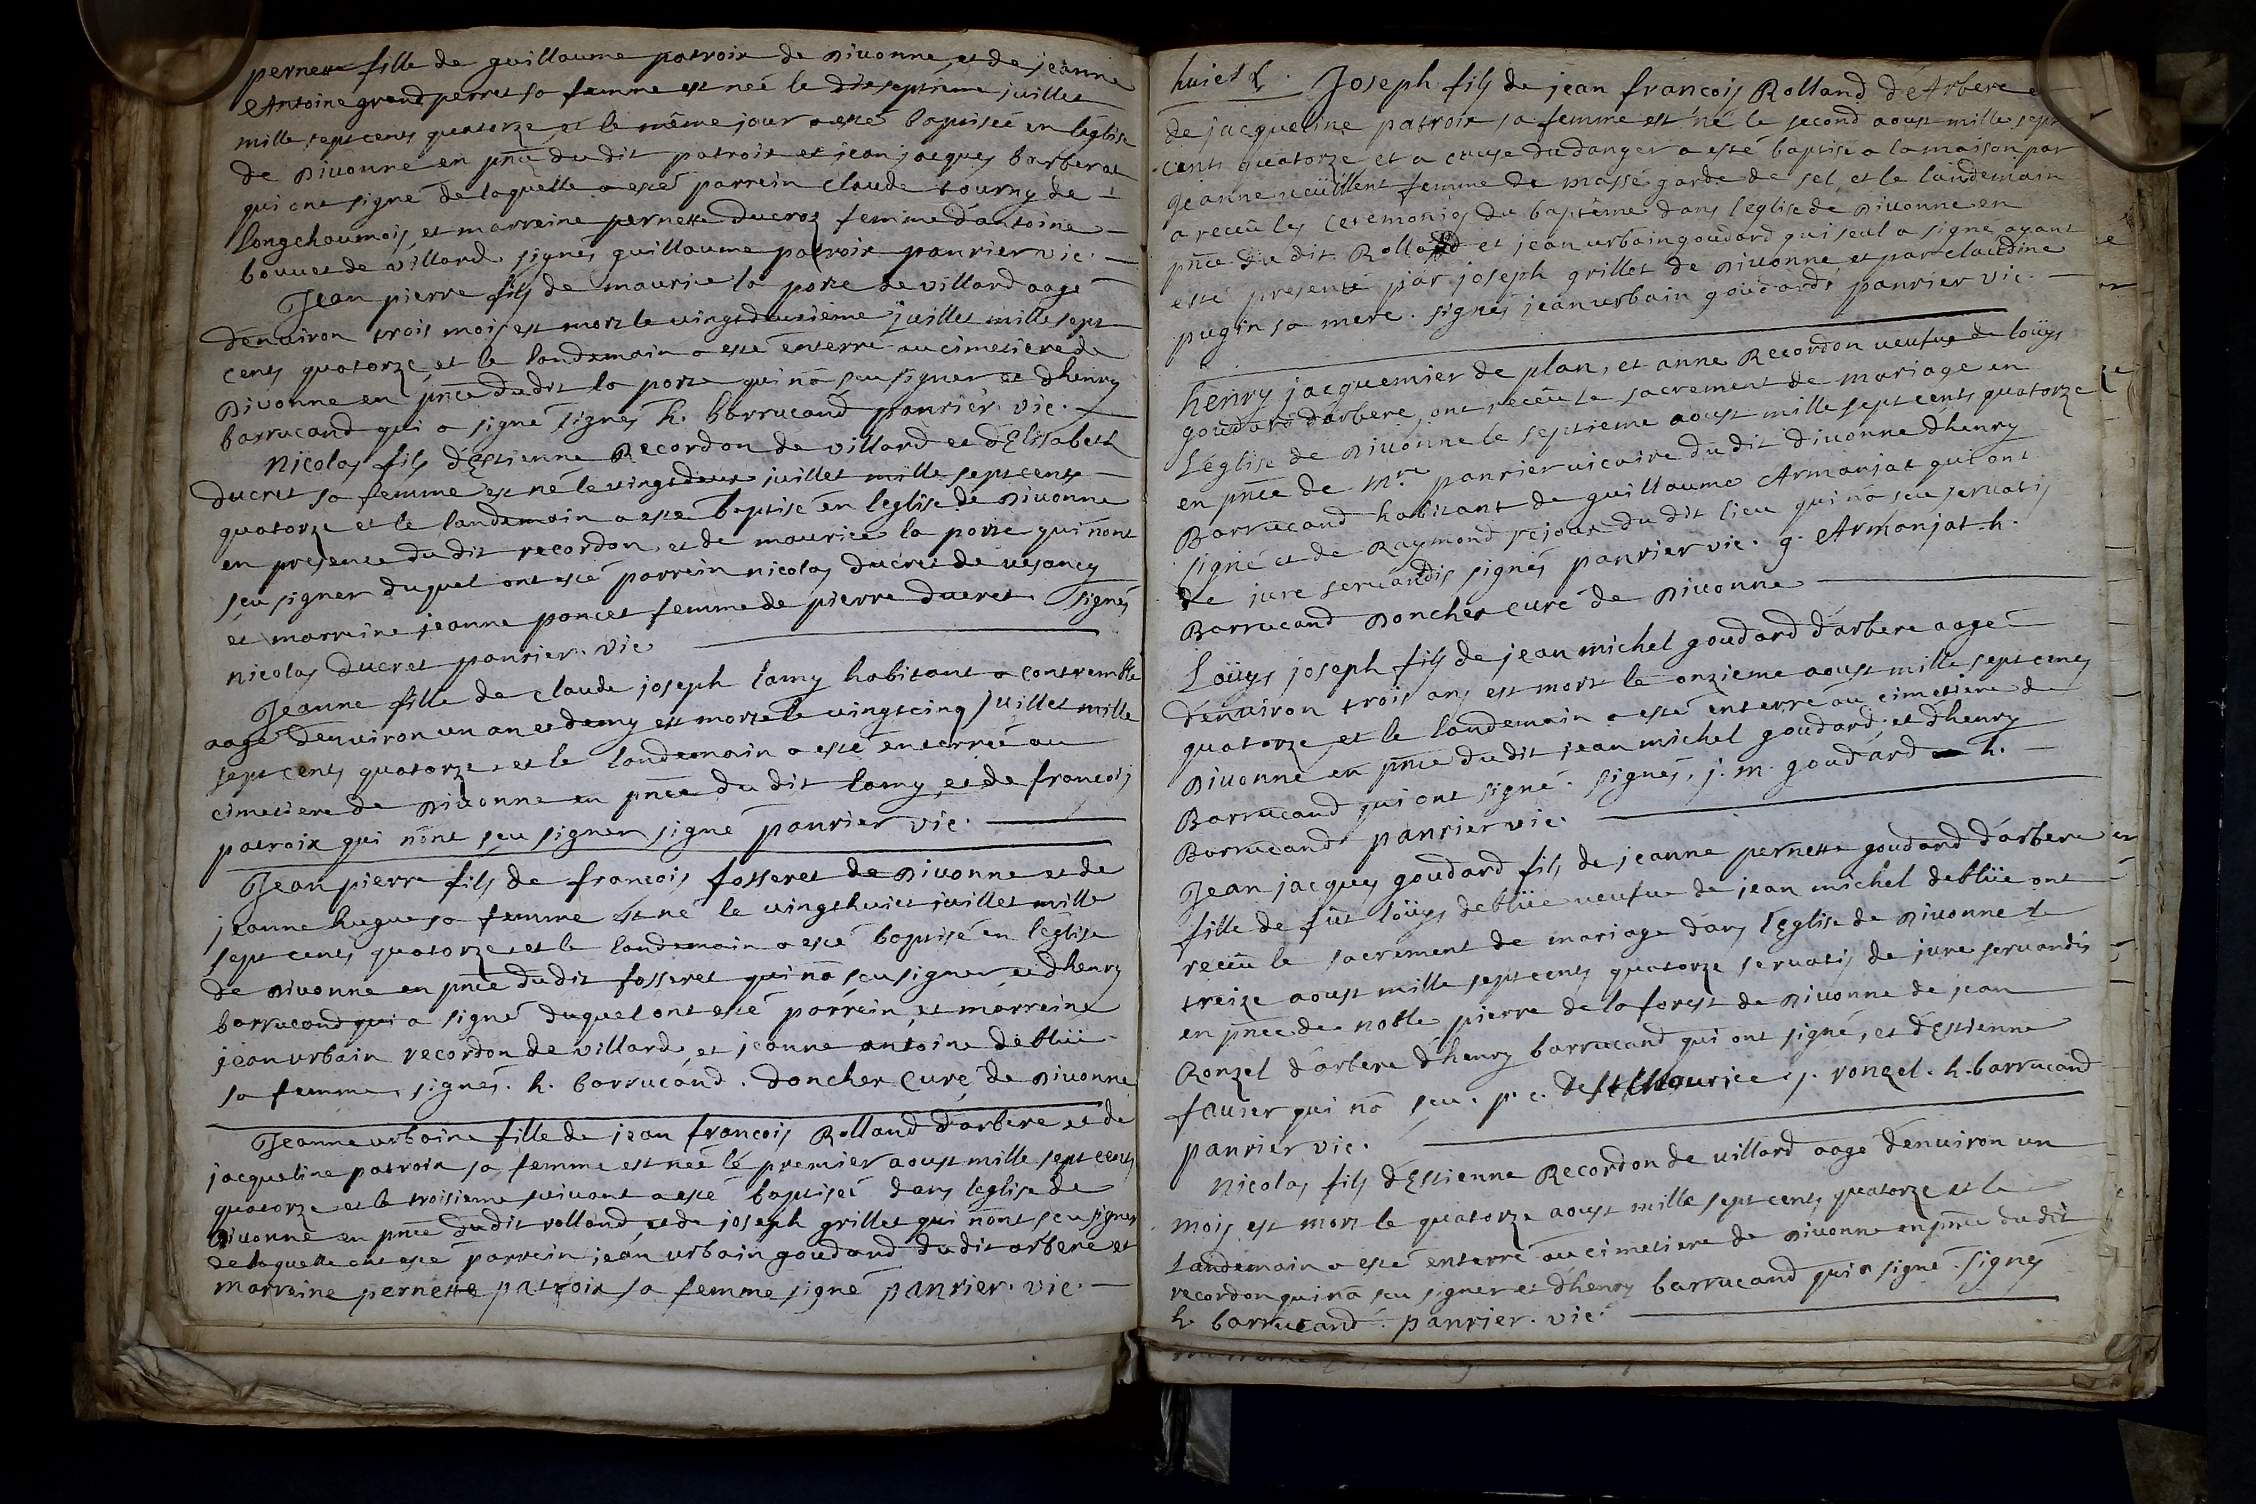 pernette fille de guillaume patroix de Divonne et de jeanne
Antoine grandperret sa femme est neé le dixseptiéme juillet
mille sept cents quatorze et le même jour a esté baptiseé en l'église
de Divonne en pnce du dit patroix et jean jacques barberat
qui ont signé de laquelle a esté parrein claude tourny de
longchaumois et marreine pernette ducroz femme d'antoine
bouuet de villard signés guillaume patroix panrier vic.
Jean pierre fils de maurice la porte de villard aagé
d'enuiron trois mois est mort le vingtdeuxiéme juillet mille sept
cents quatorze et le landemain a esté enterré au cimetiere de
Divonne en pnce du dit la porte qui n'a sçeu signer et d'henry
barrucand qui a signé signés h. barrucand panrier. vic.
Nicolas fils d'Estienne Recordon de villard et d'Elisabeth
ducret sa femme est né le vingtdeux juillet mille sept cents
quatorze et le landemain a esté baptisé en l'eglise de Divonne
en presence du dit recordon et de maurice la porte qui n'ont
sçeu signer duquel ont esté parrein nicolas ducret de vesancy
et marreine jeanne poncet femme de pierre ducret. Signés
nicolas ducret panrier. vic.
Jeanne fille de claude joseph lamy habitant a contremble
aageé d'enuiron un an et demy est morte le vingtcinq juillet mille
sept cents quatorze et le landemain a esté enterreé au
cimetiere de Divonne en pnce du dit lamy et de françois
patroix qui n'ont sçeu signer signé panrier vic.
Jean pierre fils de francois fosseret de Divonne et de
jeanne hugue sa femme est né le vingthuict juillet mille
sept cents quatorze et le landemain a esté baptisé en l'église
de Divonne en pnce du dit fosseret qui n'a sçeu signer et d'henry
barrucand qui a signé duquel ont esté parréin et marreine
jean urbain recordon de villard et jeanne antoine deblüe
sa femme signés. h. barrucand. doncher Curé de Divonne
Jeanne urbaine fille de jean françois Rolland d'arbere et de
jacqueline patroix sa femme est neé le premier aoust mille sept cents
quatorze et le troisieme suiuant a esté baptiseé dans l'eglise de
Divonne en pnce du dit rolland et de joseph grillet qui n'ont sçeu signer
de laquelle ont esté parrein jean urbain goudard du dit arbere et
marreine pernette patroix sa femme signé panrier. vic.
huict Joseph fils de jean françois Rolland d'Arbere et
de jacqueline patroix sa femme est né le second aoust mille sept
cents quatorze et a cause du danger a esté baptisé a la maison par
jeanne femme de massé garde de sel, et le landemain
a receu les ceremonies du baptême dans l'eglise de Divonne en
pnce du dit Rolland et jean urbain goudard qui seul a signé ayant
esté presenté par joseph grillet de Divonne et par claudine
pugin sa mere. signés jean urbain goudard panrier vic.
henry jacquemier de plan, et anne Recordon veufue de loüys
goudard d'arbere, ont receu le sacrement de mariage en
L'église de Divonne le septieme aoust mille sept cents quatorze
en pnce de mre panrier vicaire du dit Divonne d'henry
Barrucand habitant de guillaume Armanjat qui ont
signé et de Raymond sejoux du dit lieu qui n'a sçeu servatis
de jure servandis signés panrier vic. g. Armanjat h.
Barrucand Doncher curé de Divonne
Loüys joseph fils de jean michel goudard d'arbere aagé
d'enuiron trois ans est mort le onzieme aoust mille sept cents
quatorze, et le landemain a esté enterré au cimetiere de
Divonne en pnce du dit jean michel goudard, et d'henry
Barrucand qui ont signé. signés, j. m. goudard h.
Barrucand panrier vic.
Jean jacques goudard fils de jeanne pernette goudard d'arbere
fille de fût loüys deblüe veufue de jean michel deblüe ont
receu le sacrement de mariage dans l'Eglise de Divonne le
treize aoust mille sept cents quatorze servatis de jure servandis
en pnce de noble pierre de la forest de Divonne de jean
Ronzel d'arbere d'henry barrucand qui ont signé, et d'Estienne
fausier qui n'a sçeu. p. c. de St Maurice j. ronzel. h. barrucand
panrier vic.
Nicolas fils d'Estienne Recordon de villard aagé d'enuiron un
mois est mort le quatorze aoust mille sept cents quatorze et le
Landemain a esté enterré au cimetiere de Divonne en pnce du dit
recordon qui n'a sçeu signer et d'henry barrucand qui a signé. Signés
h. barrucand. panrier. vic.